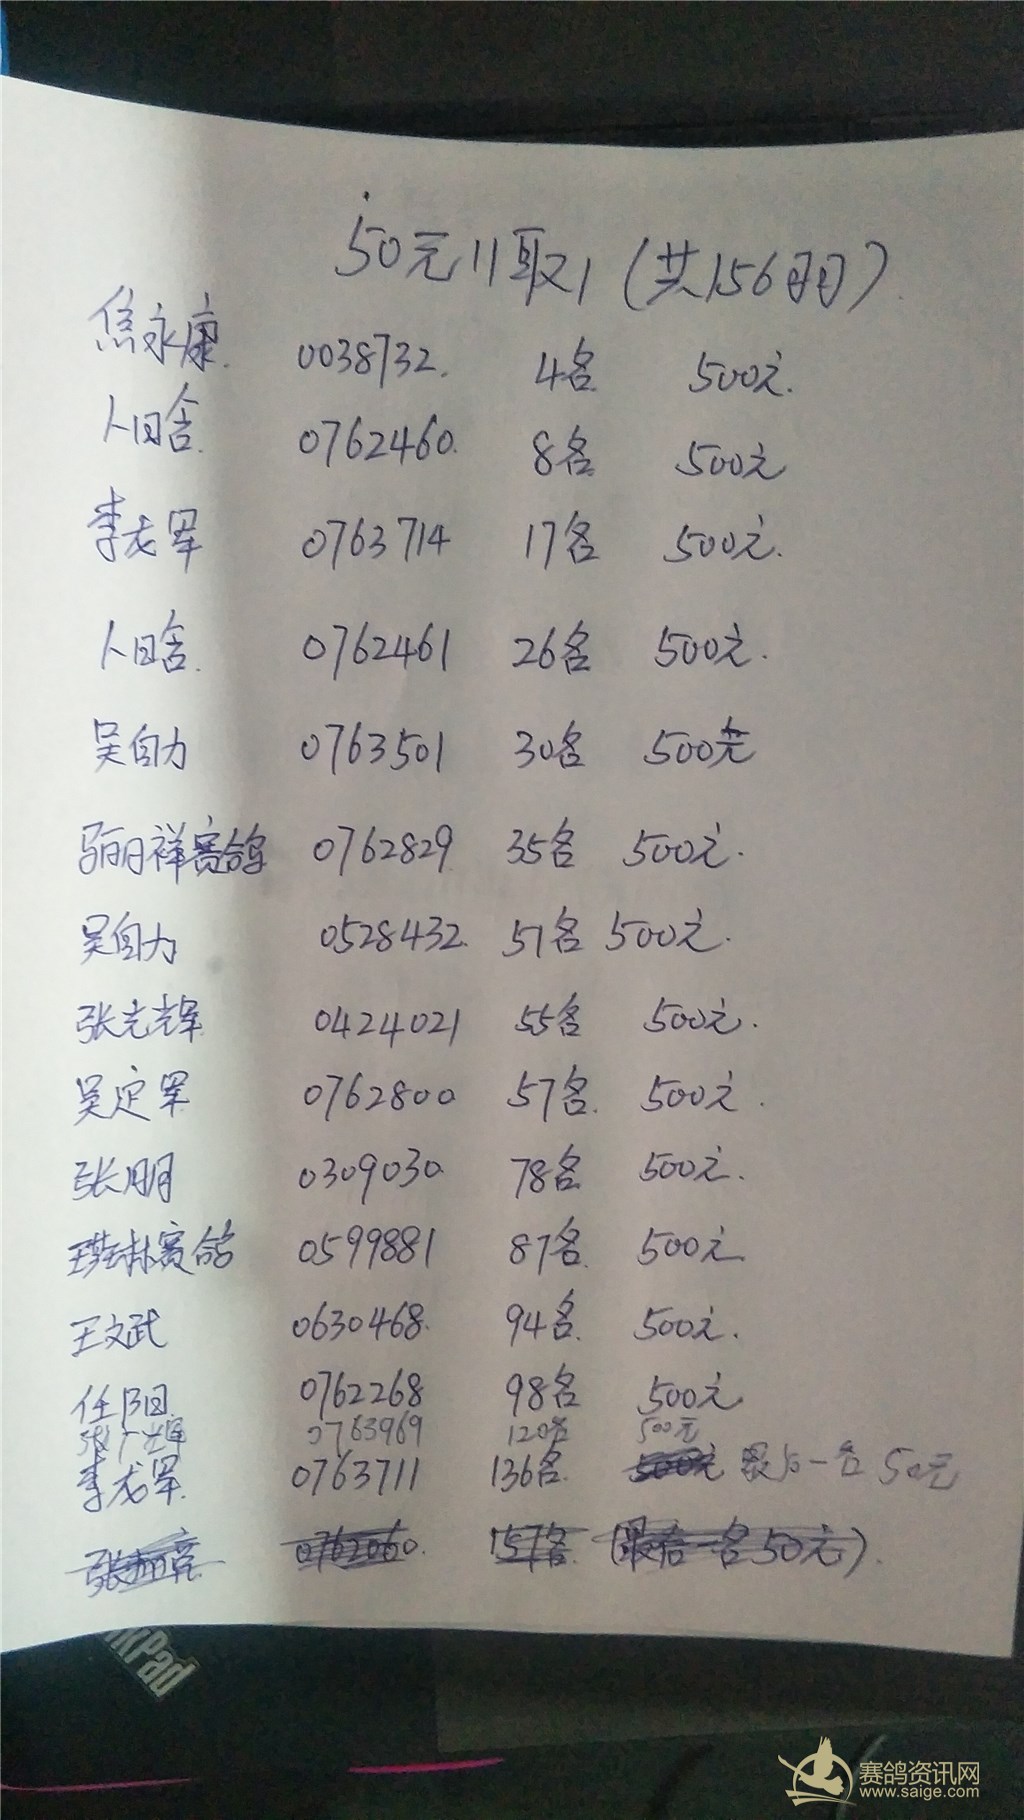 50元11取1(共156羽)
焦永康 0038732. 4名 500元.
人日舍. 0762460. 8名 500元
李龙军 0763714 17名 500元.
人日舍. 0762461 26名 500元.
吴自力 0763501 30名 500元
丽祥赛鸽 0762829 35名 500元.
吴自力 0528432. 51名 500元.
张光辉 0424021 55名 500元.
吴定军 0762800 57名. 500元.
张朋 0309030 78名 500元.
林赛鸽 0599881 87名. 500元
王文武 0630468. 94名. 500元.
任阳 0762268 98名 500元
张光辉 0763969 120名 500元
李龙军. 0763711 136名. 500元 最后一名 50元
张 0762060. 157名. (最后一名50元).
nkPad
赛鸽资讯网
www.saige.com